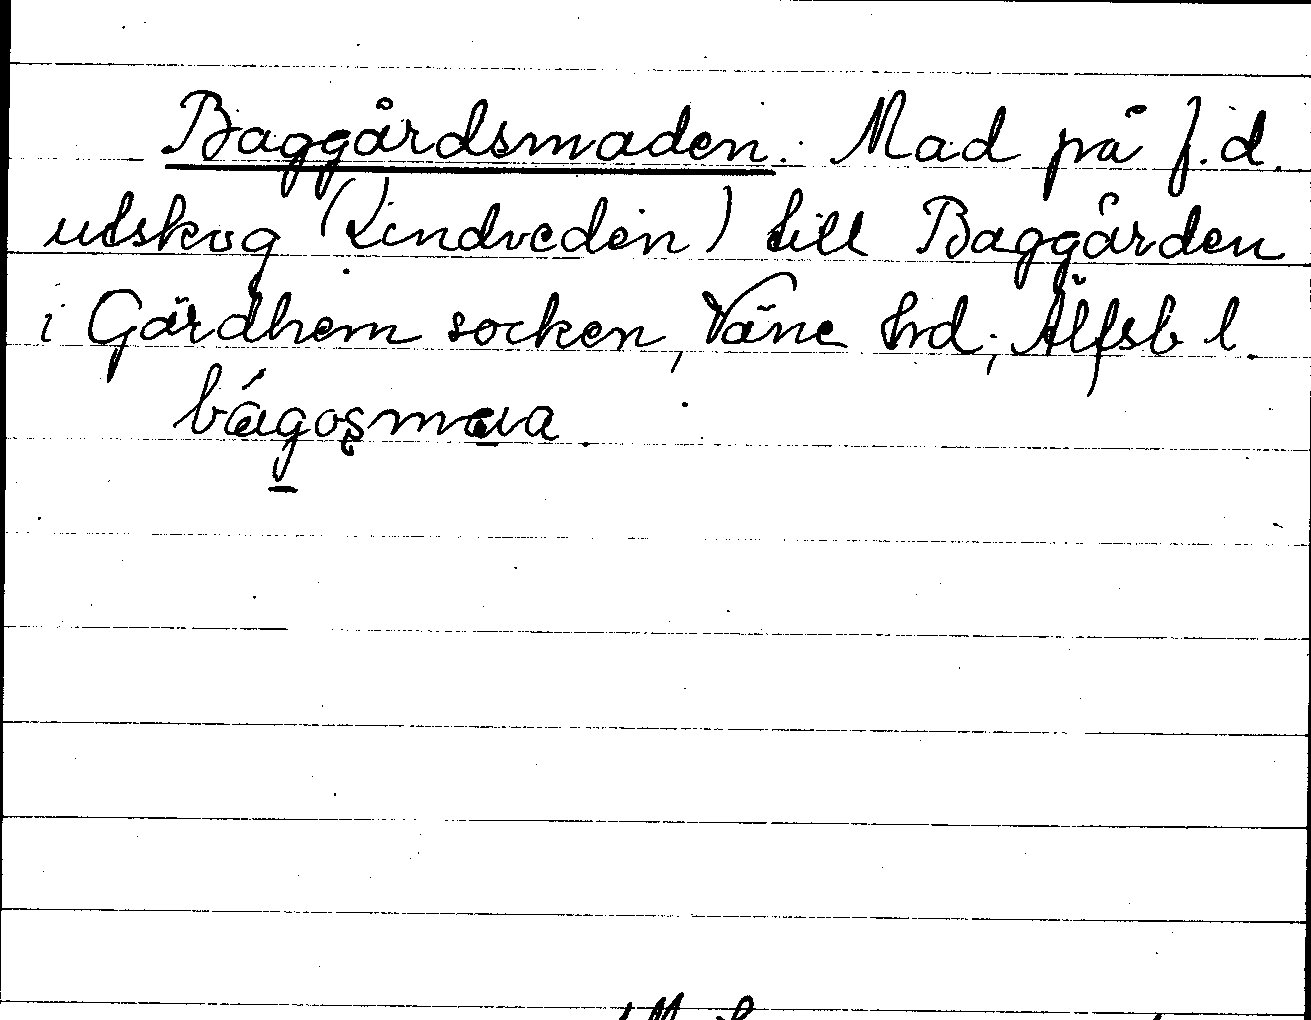 Baggårdsmaden. Mad på f.d.
utskog (Lindveden) till Baggården
i Gärdhem socken, Väne hrd; Älfsb l.
bágosmava.